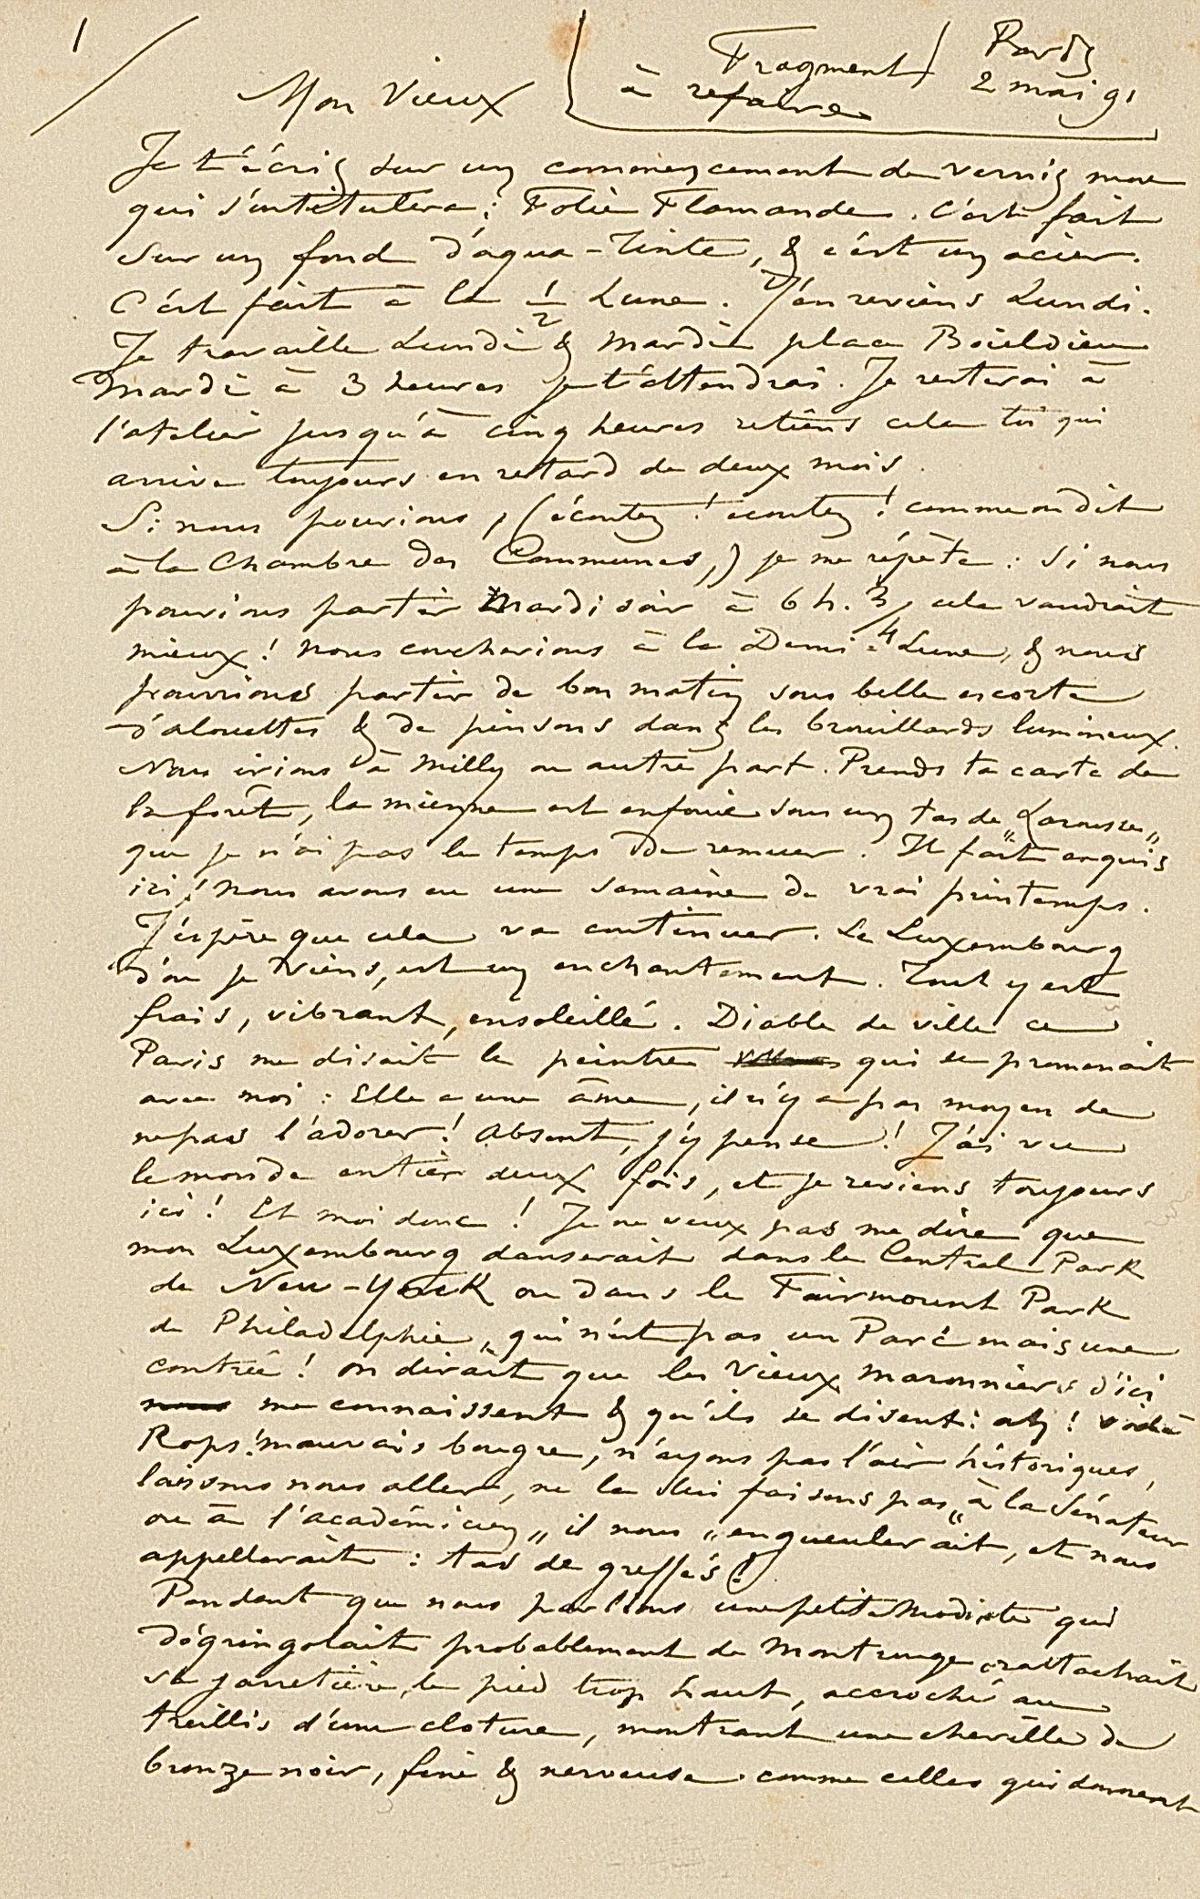 1
Fragment
à refaire
Paris
2 mai 91
Mon Vieux
Je t'écris sur un commencement de vernis mou
qui s'intitulera : Folie Flamande. C'est fait
sur un fond d'aqua-Tinte, & c'est un acier.
C'est fait à la 1/2 Lune. J'en reviens Lundi.
Je travaille Lundi & Mardi place Boieldieu
Mardi à 3 heures je t'attendrai. Je resterai à
l'atelier jusqu'à cinq heures retiens cela toi qui
arrive toujours en retard de deux mois.
Si nous pouvions, (écoutez ! écoutez ! comme on dit
à la Chambre des Communes,) je me répète : Si nous
pouvions partir Mardi soir à 6 h. 3/4 cela vaudrait
mieux ! nous coucherions à la Demi-Lune, & nous
pourrions partir de bon matin sous belle escorte
d'alouettes & de pinsons dans les brouillards lumineux.
Nous irions à Milly ou autre part. Prends ta carte de
la forêt, la mienne est enfouie sous un tas de „Larousse„
que je n'ai pas le temps de remuer. Il fait exquis
ici ! Nous avons eu une semaine de vrai printemps.
J'espère que cela va continuer. Le Luxembourg
d'où je viens, est un enchantement. Tout y est
frais, vibrant, ensoleillé. Diable de ville ce
Paris me disait le peintre qui se promenait
avec moi : Elle a une âme, il n'y a pas moyen de
ne pas l'adorer ! Absent, j'y pense ! J'ai vu
le monde entier deux fois, et je reviens toujours
ici ! Et moi donc ! Je ne veux pas me dire que
mon Luxembourg danserait dans le Central Park
de New-York ou dans le Fairmount Park
de Philadelphie, qui n'est pas un Parc mais une
contrée ! on dirait que les vieux maronniers d'ici
nous me connaissent & qu'ils se disent : ah ! voilà
Rops ! mauvais bougre, n'ayons pas l'air historiques,
laissons nous aller, ne la lui faisons pas „à la Sénateur
ou à l'académicien„ il nous „engueulerait, et nous
appellerait : tas de greffés !
Pendant que nous parlions une petite Modiste qui
dégringolait probablement de Montrouge rattachait
sa jarretière, le pied trop haut, accroché au
treillis d'une cloture, montrant une cheville de
bronze noir, fine & nerveuse comme celles qui donnent